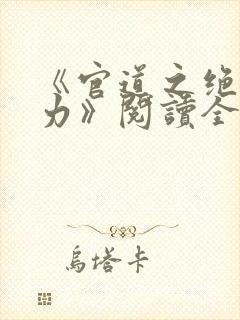 《官道之绝
力》閱讀全
烏塔卡